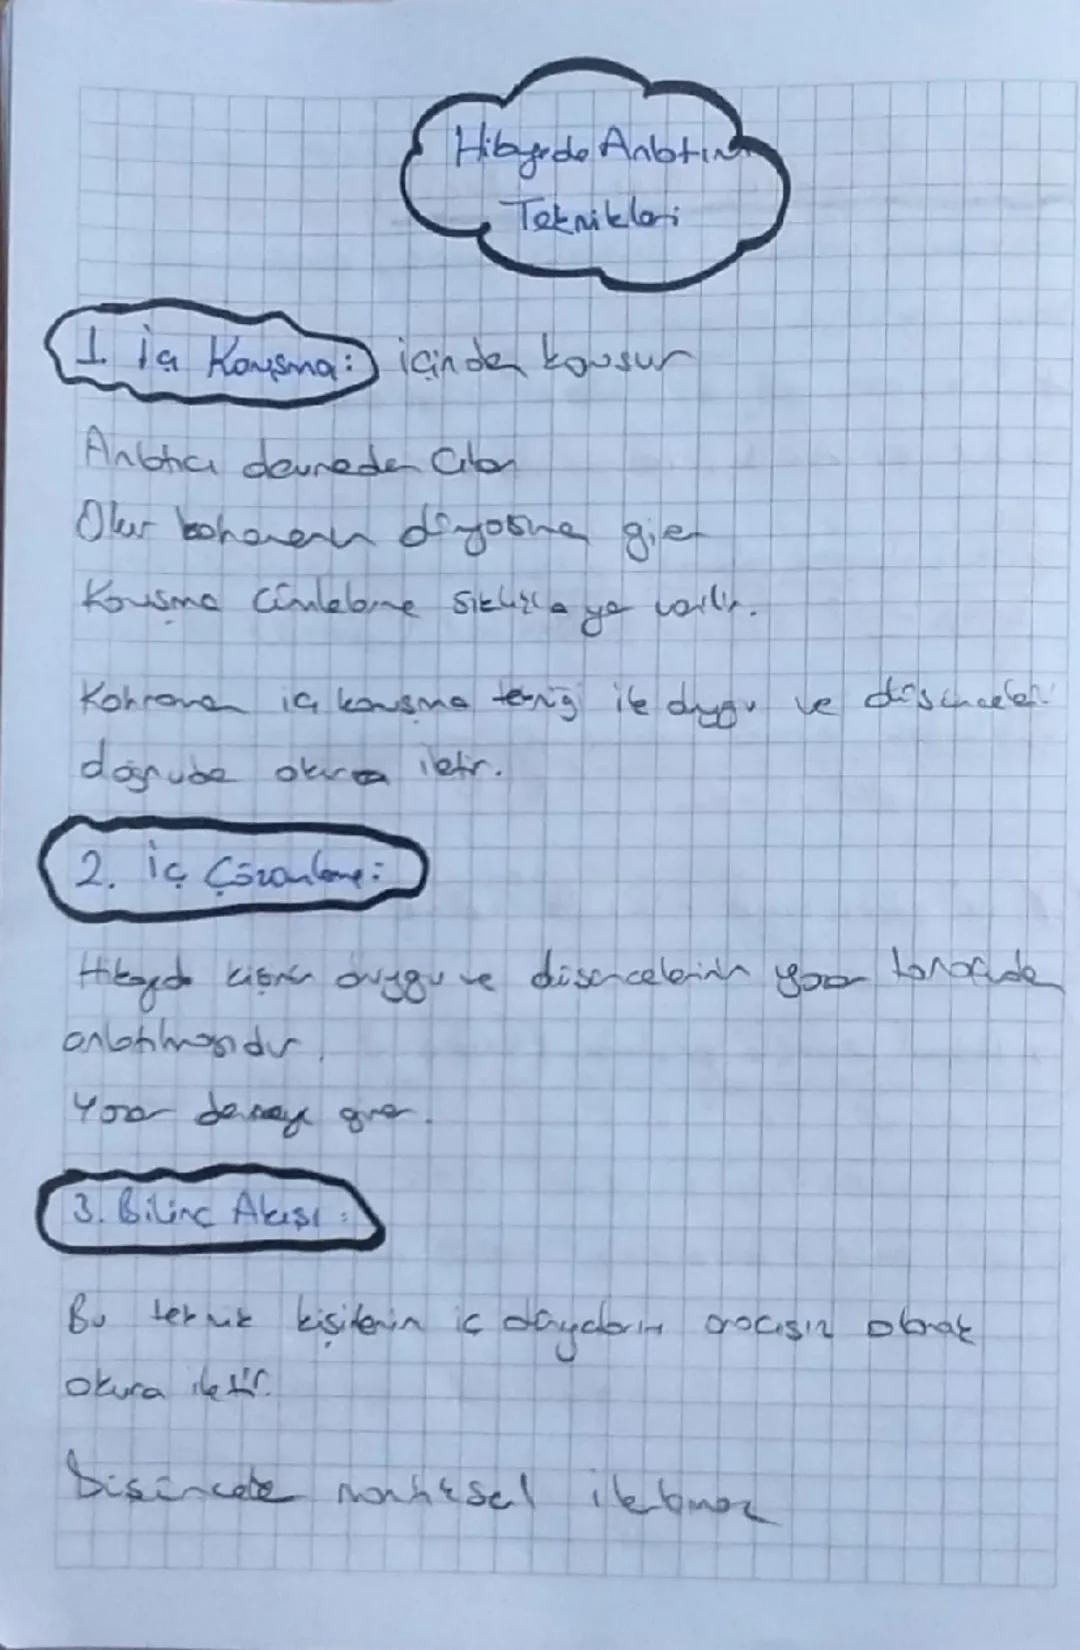 Hikayede Anlatım
Teknikleri
1. İç Konuşma: içinden konuşur
Anlatıcı devreden Çıkar
Okur kahramanın dünyasına girer
Konuşma Cümlelerine sıklıkla yer verilir.
Kahraman iç konuşma tekniği ile duygu ve düşünceleri
doğrudan okura iletir.
2. İç Çözümleme:
Hikayede kişinin duygu ve düşüncelerinin yazar tarafından
anlatılmasıdır.
Yazar devreye girer.
3. Bilinç Akışı:
Bu teknik kişilerin iç dünyalarını aracısız olarak
okura iletir.
Düşüncede mantıksal